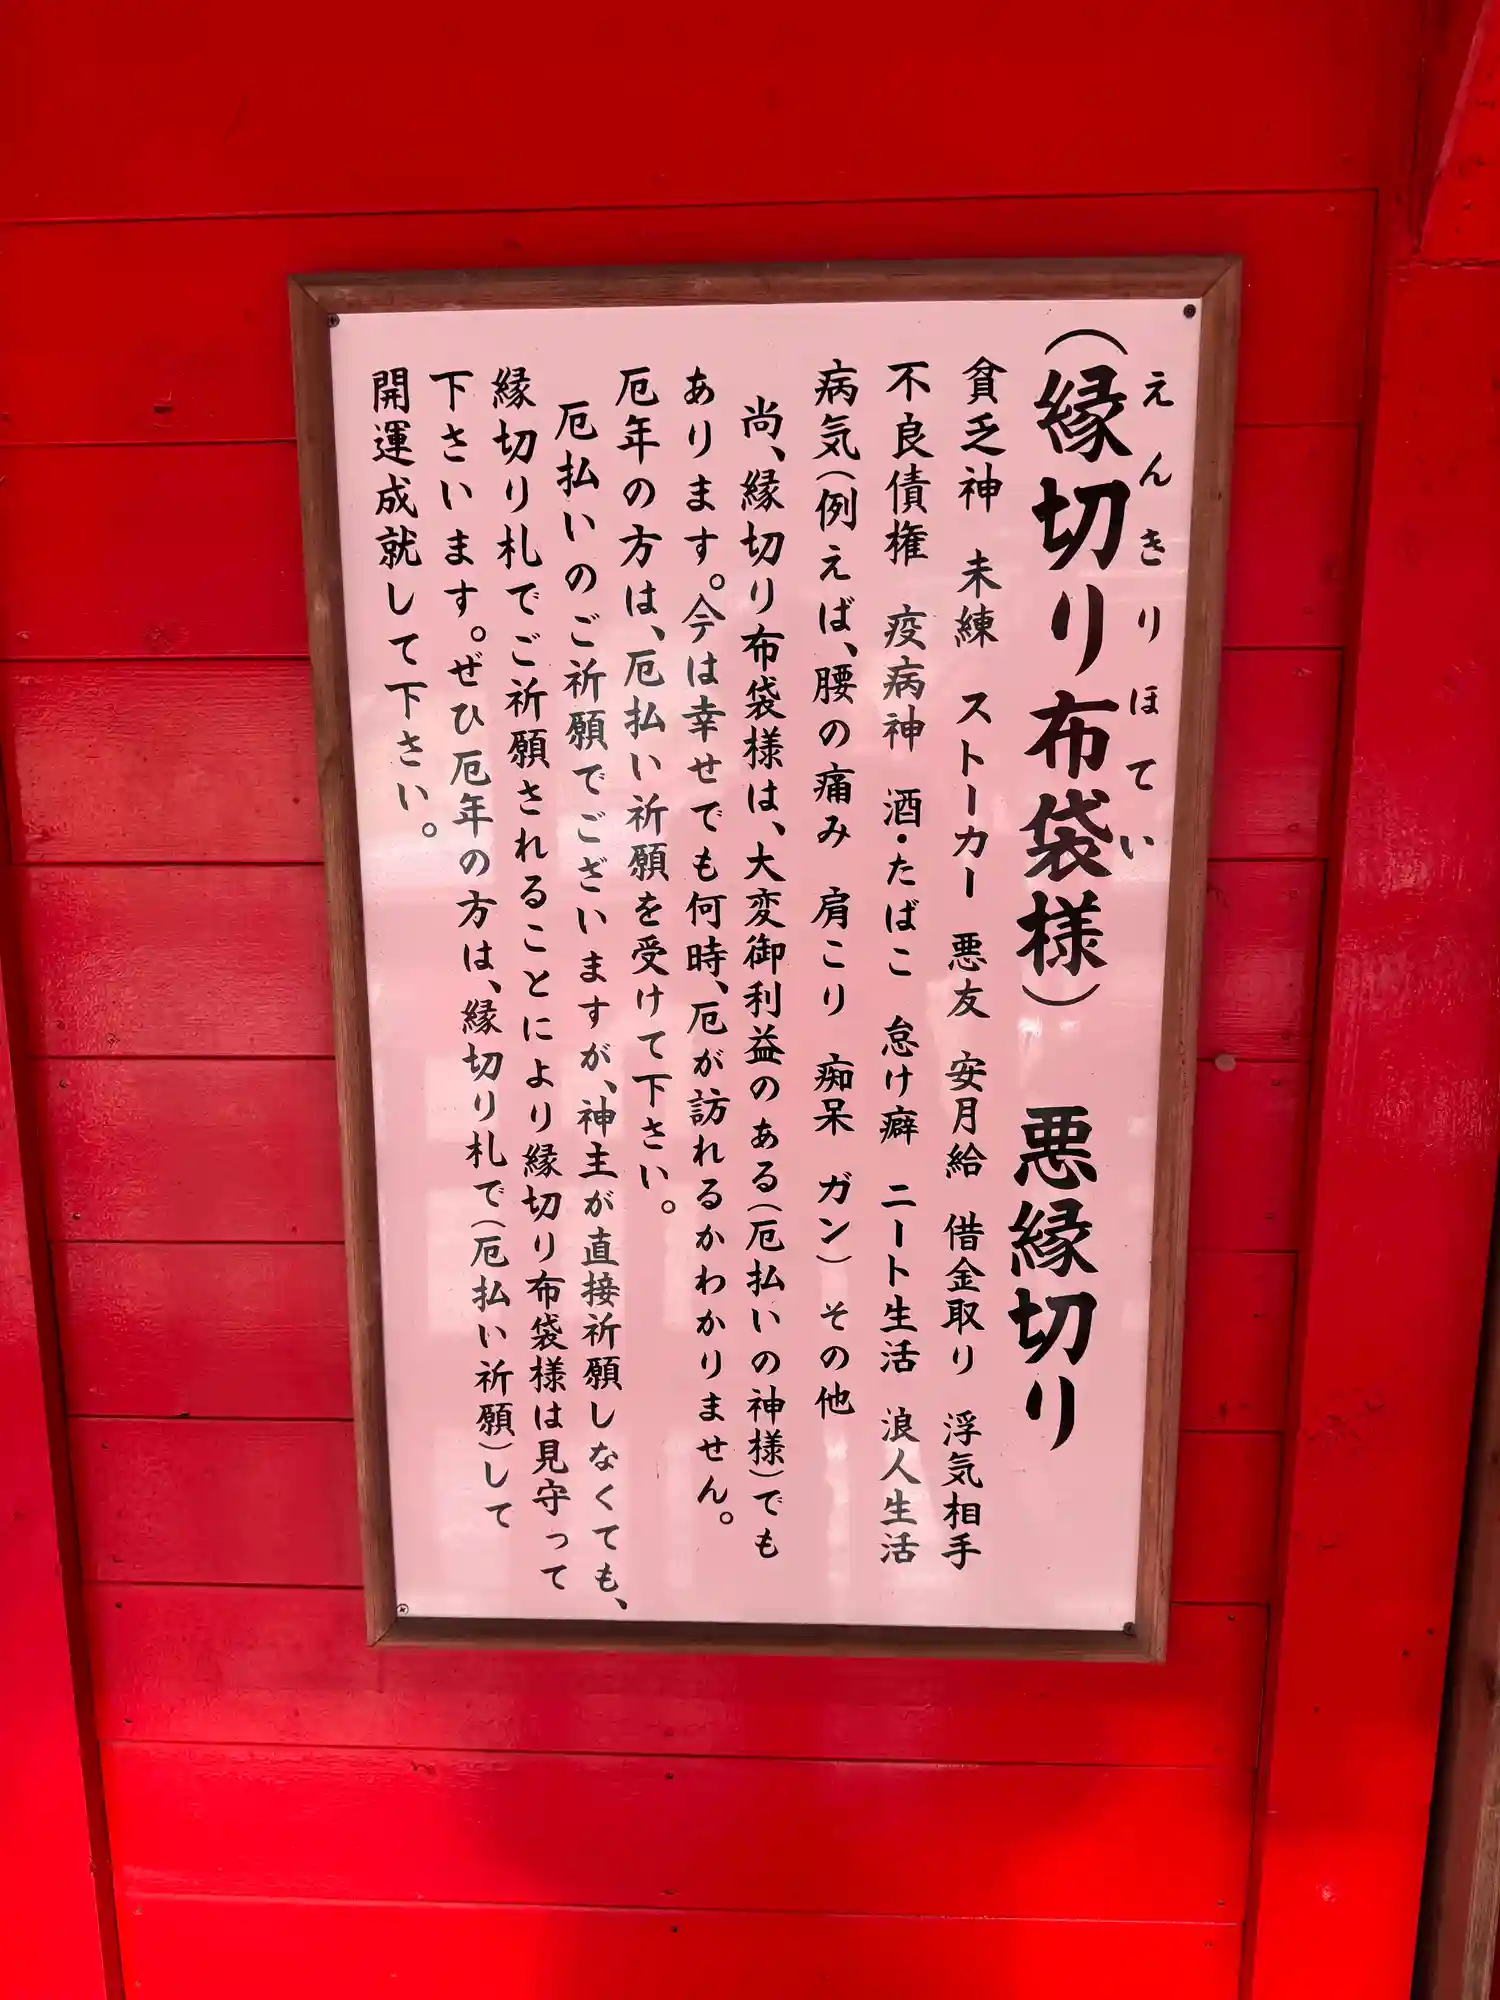 （縁切り布袋様）　悪縁切り
えんきりほてい
貧乏神　未練　ストーカー　悪友　安月給　借金取り　浮気相手
不良債権　疫病神　酒・たばこ　怠け癖　ニート生活　浪人生活
病気（例えば、腰の痛み　肩こり　痴呆　ガン）その他
尚、縁切り布袋様は、大変御利益のある（厄払いの神様）でも
あります。今は幸せでも何時、厄が訪れるかわかりません。
厄年の方は、厄払い祈願を受けて下さい。
厄払いのご祈願でございますが、神主が直接祈願しなくても、
縁切り札でご祈願されることにより縁切り布袋様は見守って
下さいます。ぜひ厄年の方は、縁切り札で（厄払い祈願）して
開運成就して下さい。